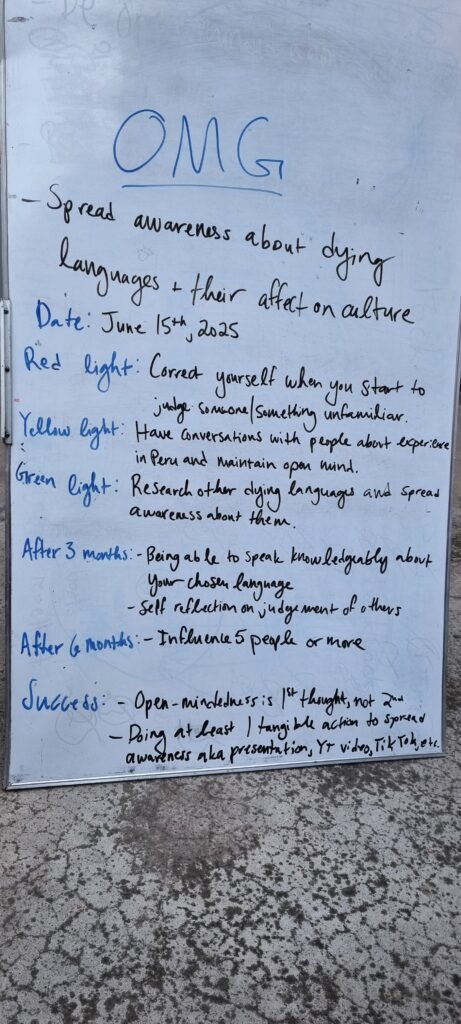 OMG
- Spread awareness about dying
languages + their affect on culture
Date: June 15th, 2025
Red light: Correct yourself when you start to
judge someone/something unfamiliar.
Yellow light: Have conversations with people about experience
in Peru and maintain open mind.
Green light: Research other dying languages and spread
awareness about them.
After 3 months: - Being able to speak knowledgeably about
your chosen language
- Self reflection on judgement of others
After 6 months: - Influence 5 people or more
Success: - Open-mindedness is 1st thought, not 2nd
- Doing at least 1 tangible action to spread
awareness aka presentation, YT video, TikTok, etc.